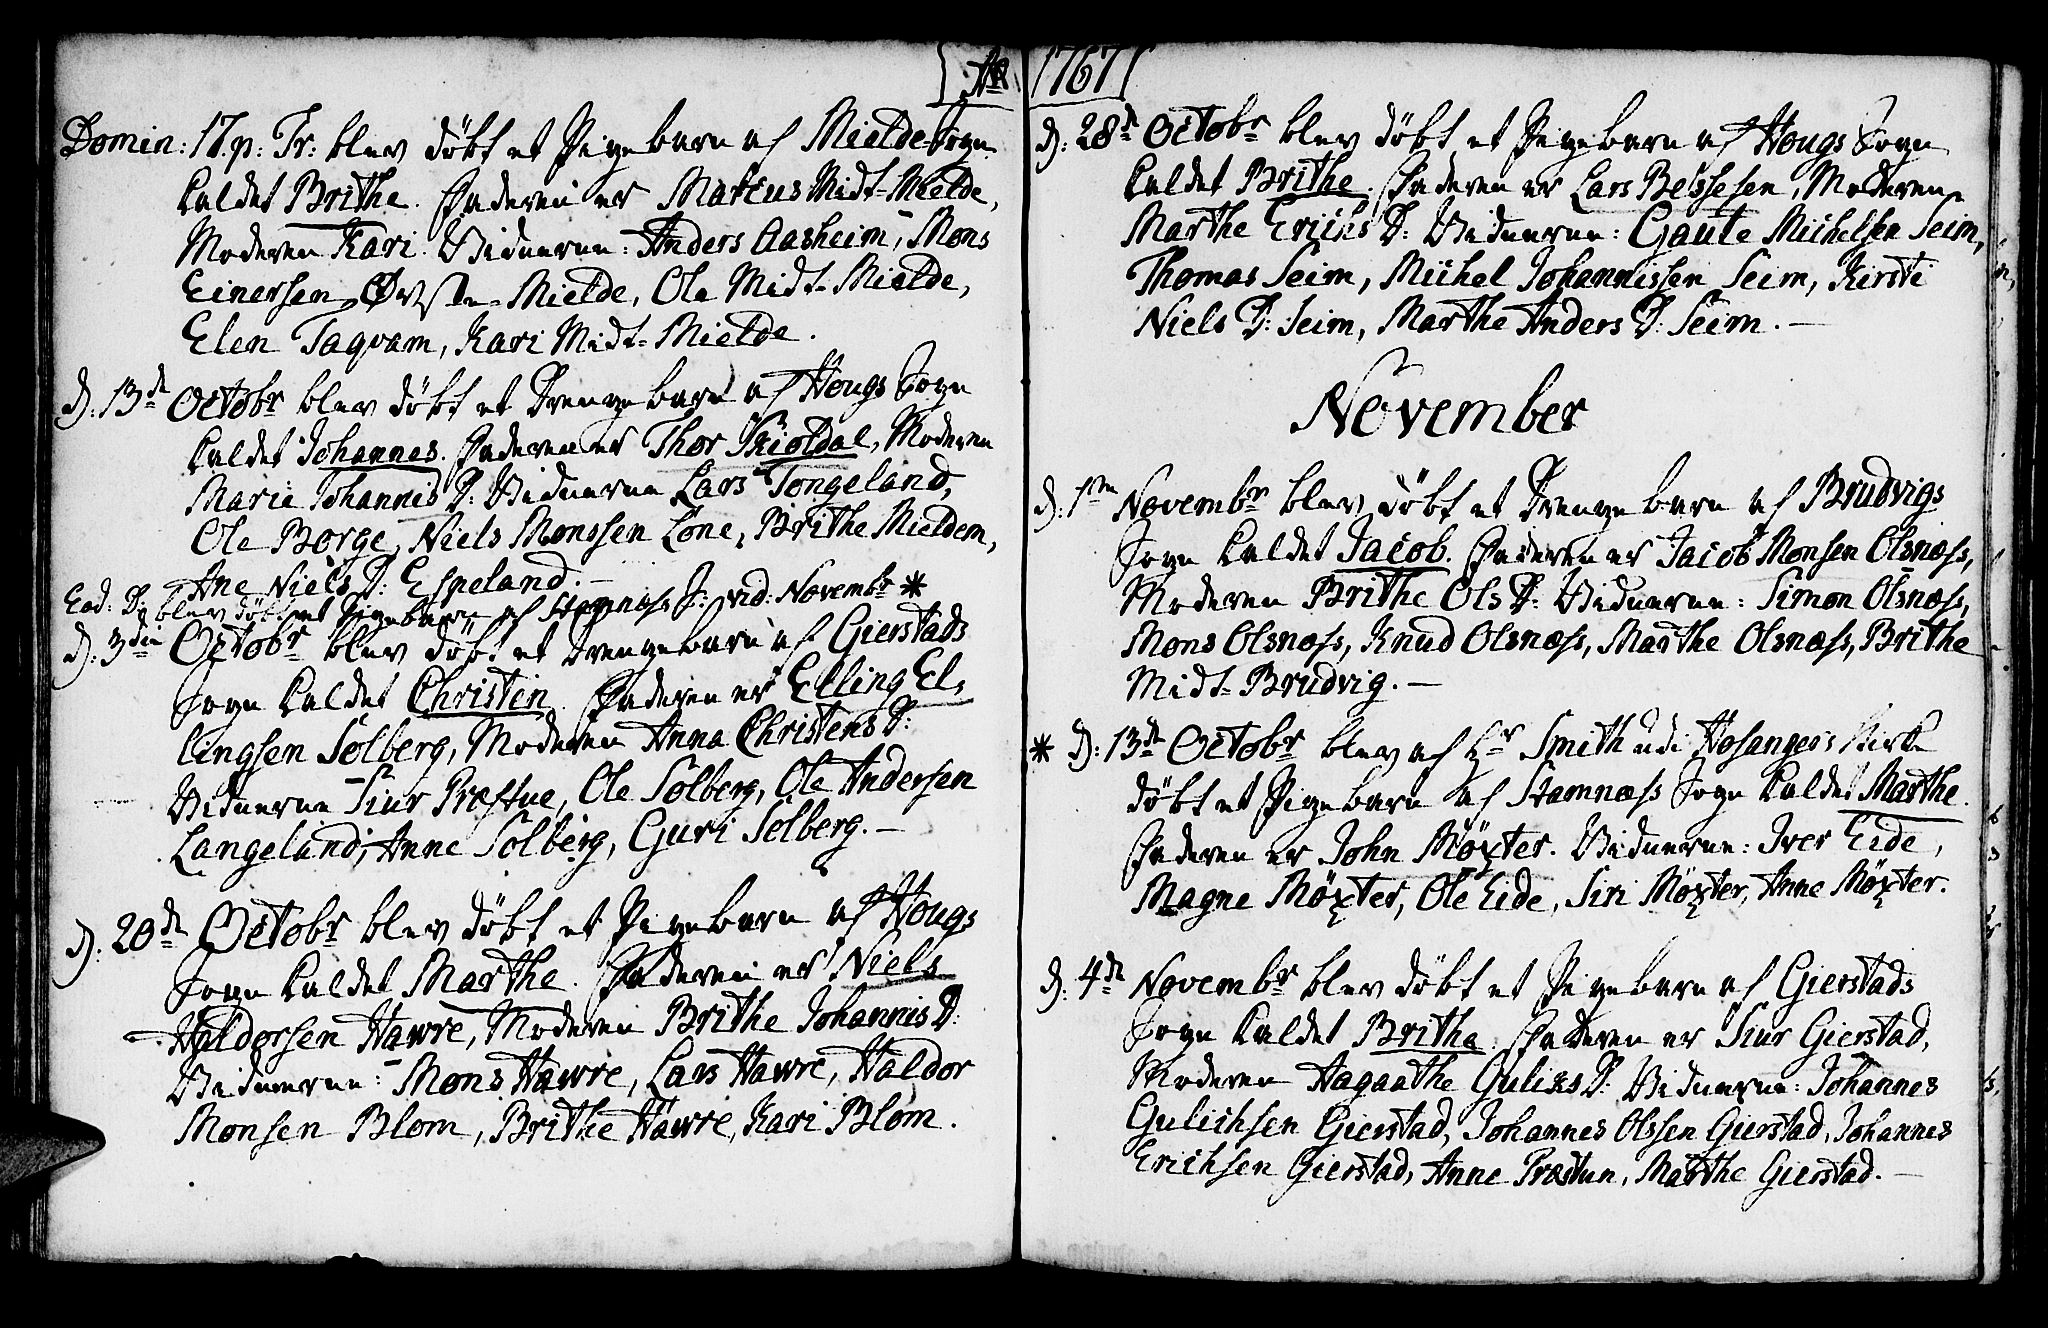 Ao
Domin: 17. p: Tr: blev döbt et Pigebarn af Mielde Sogn
kaldet Brithe. Faderen er Marcus Midt-Mielde,
Moderen Kari. Vidnerne: Anders Aasheim, Mons
Einersen Øvste-Mielde, Ole Midt-Mielde,
Elen Taqvam, Kari Midt-Mielde.
d: 13de Octobr blev döbt et Drengebarn af Hougs Sogn
kaldet Johannes. Faderen er Thor Skioldal, Moderen
Marie Johannis D: Vidnerne Lars Tongeland,
Ole Borge, Niels Monssen Lone, Brithe Mieldem,
Ane Niels D: Espeland. –
Eod: D: blev döbt et Pigebarn af Stamnæss S: vid: Novembr *
d: 3die Octobr blev döbt et Drengebarn af Gierstads
Sogn kaldet Christen. Faderen er Elling El-
lingsen Solberg, Moderen Anna Christens D:
Vidnerne Siur Præstue, Ole Solberg, Ole Andersen
Langeland, Anne Solberg, Guri Solberg. –
d: 20de Octobr blev döbt et Pigebarn af Hougs
Sogn kaldet Marthe. Faderen er Niels
Haldorsen Hawre, Moderen Brithe Johannis D:
Vidnerne: Mons Hawre, Lars Hawre, Haldor
Monsen Blom, Brithe Hawre, Kari Blom.
1767
d: 28de Octobr blev döbt et Pigebarn af Hougs Sogn
kaldet Brithe. Faderen er Lars Belssesen, Moderen
Marthe Erichs D: Vidnerne: Gaute Michelsen Seim,
Thomas Seim, Michel Johannissen Seim, Kirsti
Niels D: Seim, Marthe Anders D: Seim. –
November
d: 1ten Novembr blev döbt et Drengebarn af Brudvigs
Sogn kaldet Jacob. Faderen er Jacob Monsen Olsnæss,
Moderen Brithe Ols D: Vidnerne: Simon Olsnæss,
Mons Olsnæss, Knud Olsnæss, Marthe Olsnæss, Brithe
Midt-Brudvig. –
* d: 13de Octobr blev af Hr Smith udi Hosangers Kirke
döbt et Pigebarn af Stamnæss Sogn kaldet Marthe.
Faderen er John Möxter. Vidnerne: Iver Eide,
Magne Möxter, Ole Eide, Siri Möxter, Anne Möxter.
d: 4de Novembr blev döbt et Pigebarn af Gierstads
Sogn kaldet Brithe. Faderen er Siur Gierstad,
Moderen Aagaathe Guliks D: Vidnerne: Johannes
Gulichsen Gierstad, Johannes Olssen Gierstad, Johannes
Erichsen Gierstad, Anne Præstun, Marthe Gierstad. –